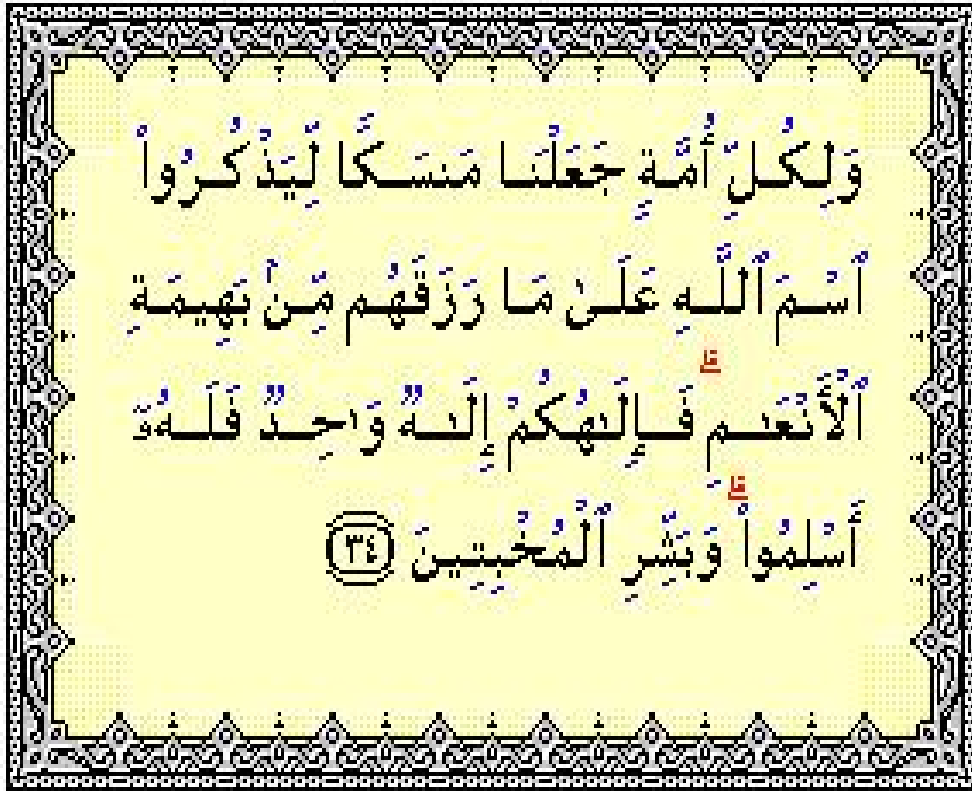 وَلِكُلِّ أُمَّةٍ جَعَلْنَا مَنسَكًا لِّيَذْكُرُوا۟
ٱسْمَ ٱللَّهِ عَلَىٰ مَا رَزَقَهُم مِّنۢ بَهِيمَةِ
ٱلْأَنْعَٰمِ ۗ فَإِلَٰهُكُمْ إِلَٰهٌ وَٰحِدٌ فَلَهُۥٓ
أَسْلِمُوا۟ ۗ وَبَشِّرِ ٱلْمُخْبِتِينَ ٣٤